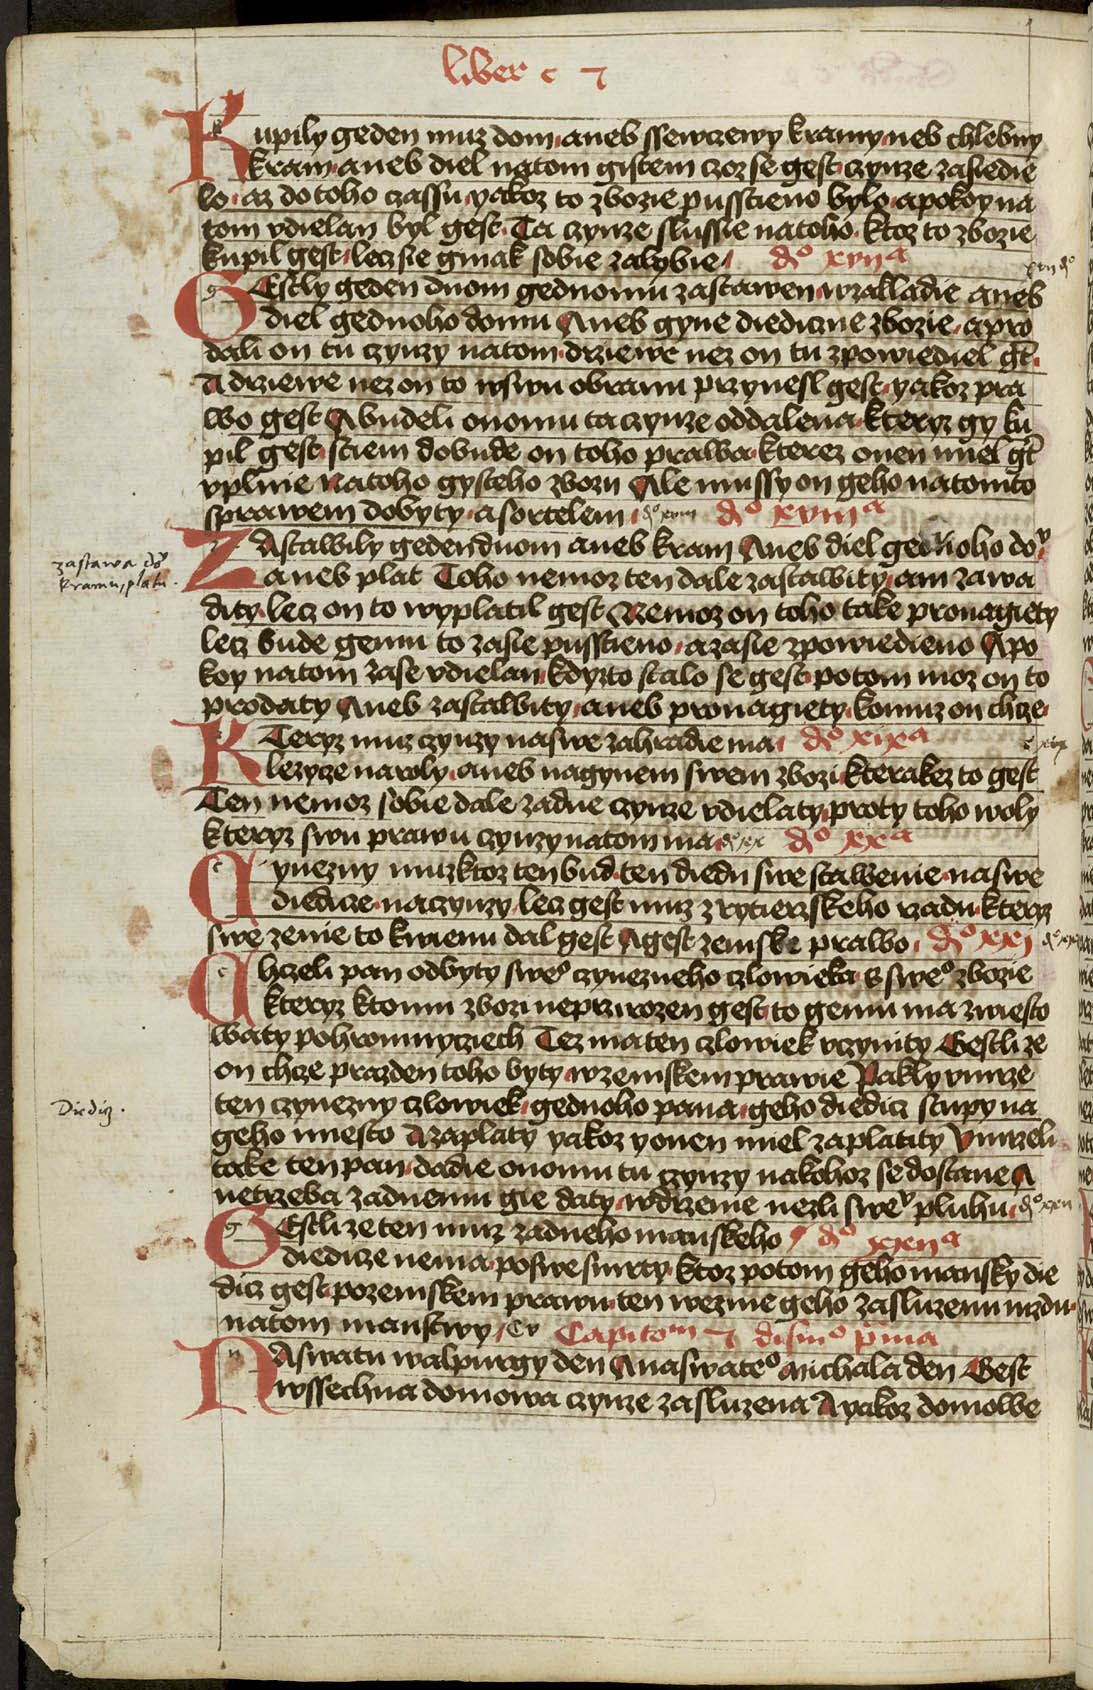 liber c 7
Kupily geden muz dom aneb ssewczewy kramy neb chlebny
kram aneb diel natom gistem czoz se gest czynze zasiedie
lo az do toho czassu yakoz to zbozie pusstieno bylo apokoy na
tom vdielan byl gest Ta czynze slussie natoho ktoz to zbozie
kupil gest lecz sie ginak sobie zalybie do xvija
xvij do
GEstly geden duom gednomu zastawen wzakladie aneb
diel gednoho domu Aneb gyne diediczne zbozie apro
dali on tu czynzy natom drziewe nez on tu zpowiediel gt
A drziewe nez on to wswu obranu przynesl gest yakoz pra
wo gest Abudeli onomu ta czynze oddalena kteryz gy ku
pil gest stiem dobude on toho prawa kterez onen miel gt
vplnie Natoho gysteho zbozu Ale mussy on geho natomto
sprawem dobyty asortelem do xviij do xviija
ZAstawily geden duom aneb kram Aneb diel gednoho do
zastawa do
kramu, platu.
aneb plat Toho nemoz ten dale zastawity ani zawa
dity lecz on to wyplatil gest Nemoz on toho take pronagiety
lecz bude gemu to zasie pusstieno azasie zpowiedieno Apo
koy natom zase vdielan kdyzto stalo se gest potom moz on to
prodaty Aneb zastawity aneb pronagiety komuz on chcze
KTeryz muz czynzy naswe zahradie ma do xixa
c xix
lezycze naroly aneb nagynem swem zbozi kterakez to gest
Ten nemoz sobie dale zadne czynze vdielaty proty toho woly
kteryz swu prawu czynzy natom ma do xx do xxa
Czynezny muz ktoz ten bud ten diedu swe stawenie naswe
diedicze naczynzy lecz gest muz zrytierzskeho rzadu kteryz
swe zenie to kwienu dal gest Agest zemske prawo do xxj do xxj
Chczeli pan odbyty sweo czynezneho czlowieka s sweo zbozie
kteryz ktomu zbozi neprzirozen gest to gemu ma zwiesto
waty pohromnycziech Tez ma ten czlowiek vczynity Gestlize
on chcze prazden toho byty wzemskem prawie Pakly vmrze
ten czynezny czlowiek gednoho pana geho diedicz stupy na
Diedicz.
geho miesto Azaplaty yakoz y onen miel zaplatity Vmrzeli
take ten pan dadie onomu tu czynzy nakohoz se dostane A
netrzeba zadnemu gie daty wdrzenie nezli swe pluhu do xxij
GEstlize ten muz zadneho manskeho do xxija
diedicze nema poswe smrty ktoz potom geho mansky die
dicz gest pozemskem prawu ten wezme geho zasluzenu mzdu
natom manstwy Cv Capitom 7 disino prima
NAswatu walpurgy den Anaswateo michala den Gest
wssechna domowa czynze zasluzena A yakoz domowe